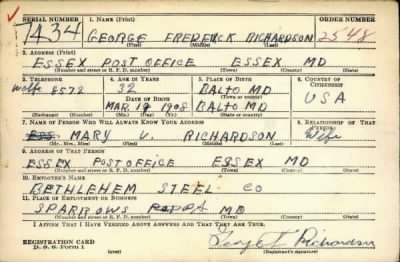 SERIAL NUMBER 1. NAME (Print) ORDER NUMBER
1434 GEORGE FREDERCK RICHARDSON 2548
(First) (Middle) (Last)
2. ADDRESS (Print)
ESSEX POST OFFICE ESSEX MD
(Number and street or R. F. D. number) (Town) (County) (State)
3. TELEPHONE 4. AGE IN YEARS 5. PLACE OF BIRTH 6. COUNTRY OF CITIZENSHIP
Wolfe 857R 32 BALTO MD
(Town or county)
DATE OF BIRTH USA
MAR 19 1908 BALTO MD
(Exchange) (Number) (Mo.) (Day) (Yr.) (State or country)
7. NAME OF PERSON WHO WILL ALWAYS KNOW YOUR ADDRESS 8. RELATIONSHIP OF THAT PERSON
MARY V. RICHARDSON Wife
(Mr., Mrs., Miss) (First) (Middle) (Last)
9. ADDRESS OF THAT PERSON
ESSEX POST OFFICE ESSEX MD
(Number and street or R. F. D. number) (Town) (County) (State)
10. EMPLOYER'S NAME
BETHLEHEM STEEL CO
11. PLACE OF EMPLOYMENT OR BUSINESS
SPARROWS MD
(Number and street or R. F. D. number) (Town) (County) (State)
I AFFIRM THAT I HAVE VERIFIED ABOVE ANSWERS AND THAT THEY ARE TRUE.
REGISTRATION CARD
D. S. S. Form 1 (over) Richardson
(Registrant's signature)